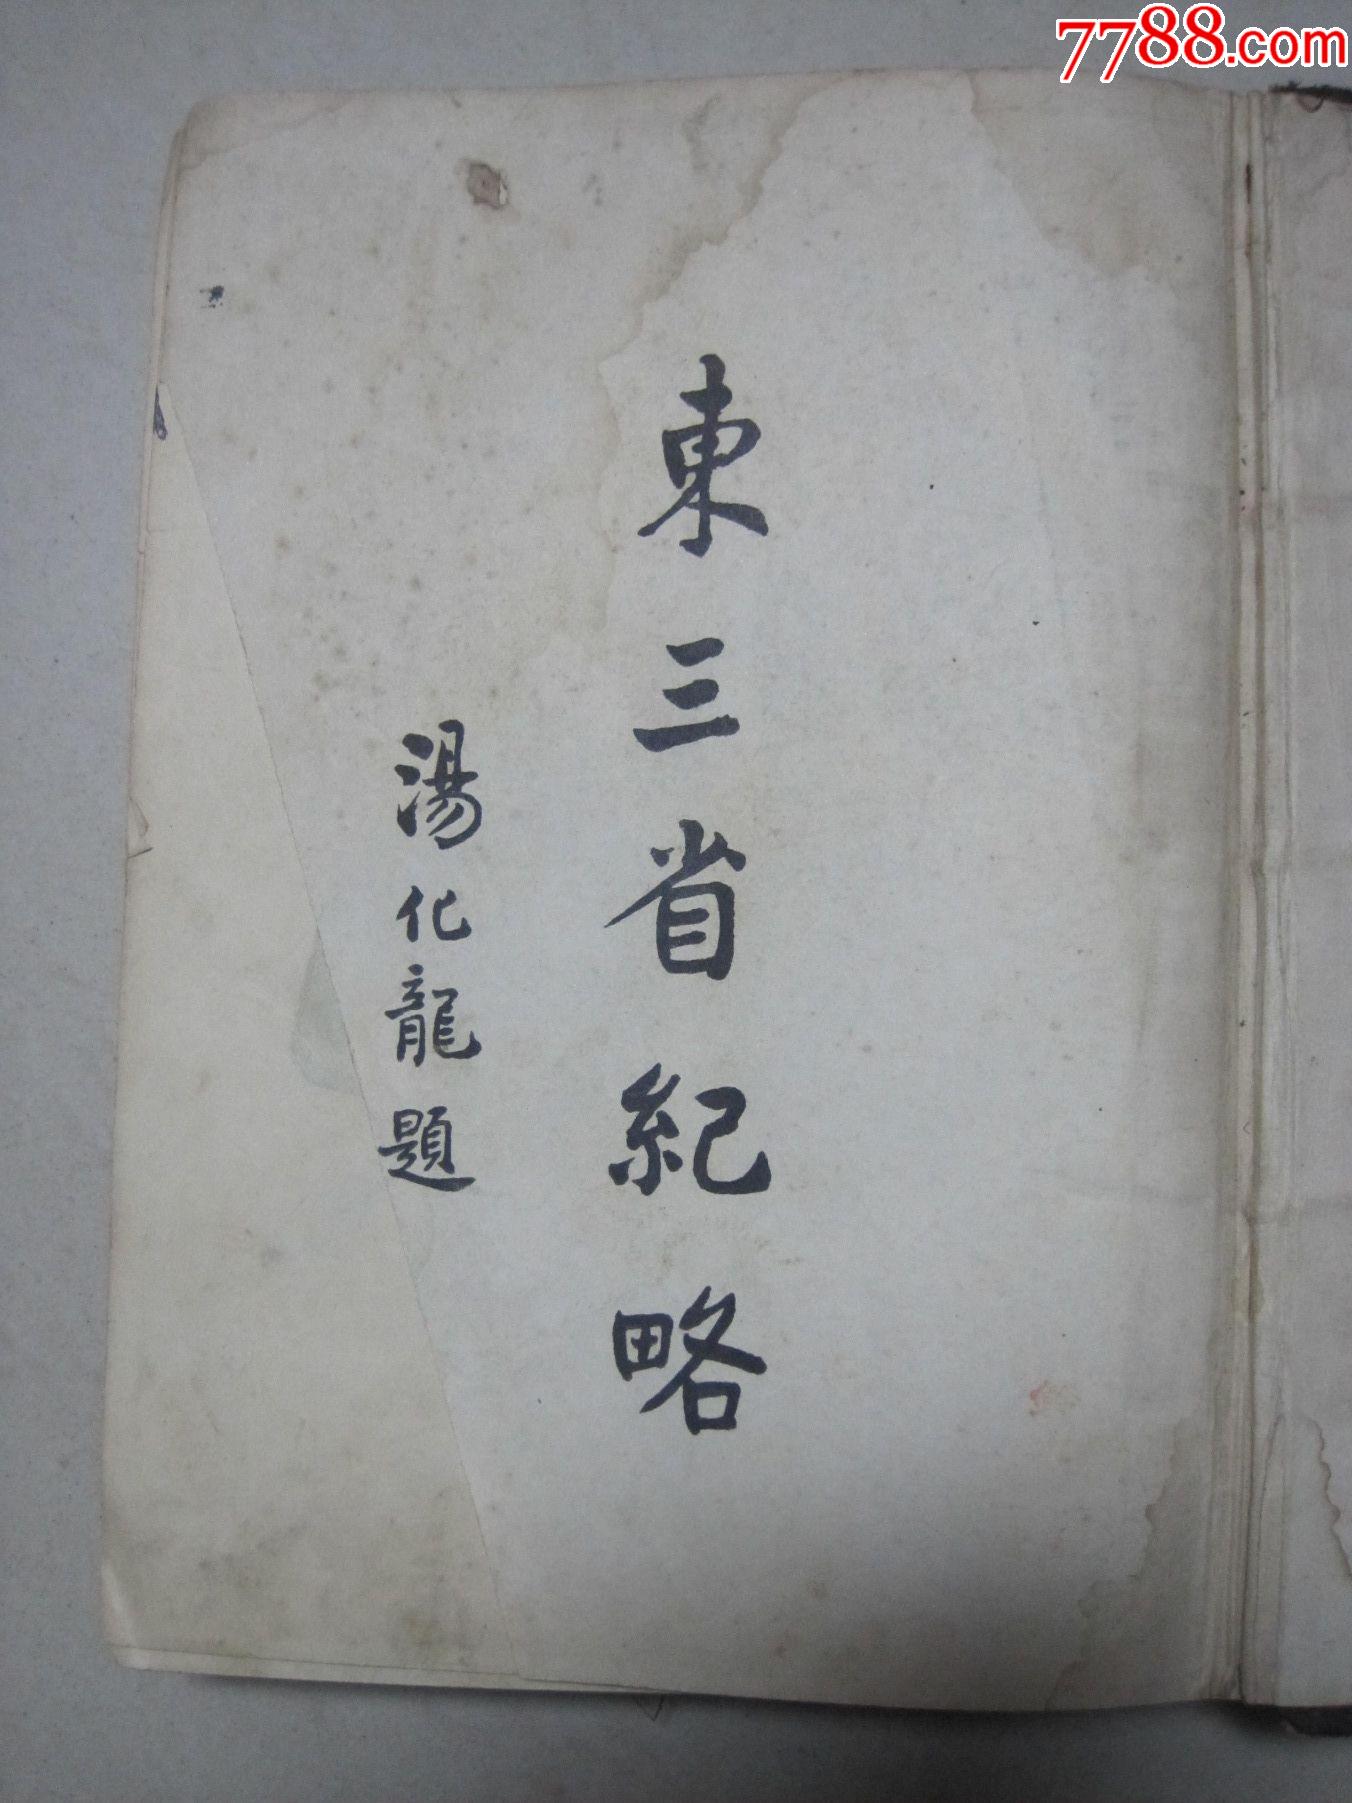 7788.com
東三省紀略
湯化龍題